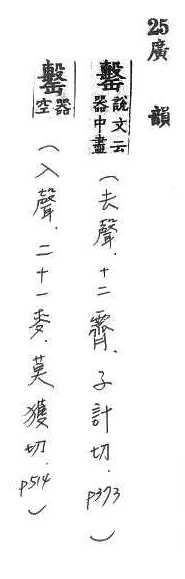 25 廣韻
罊說文云器中盡（去聲．十二霽．子計切．p373）
罊器空（入聲．二十一麥．莫獲切．p514）